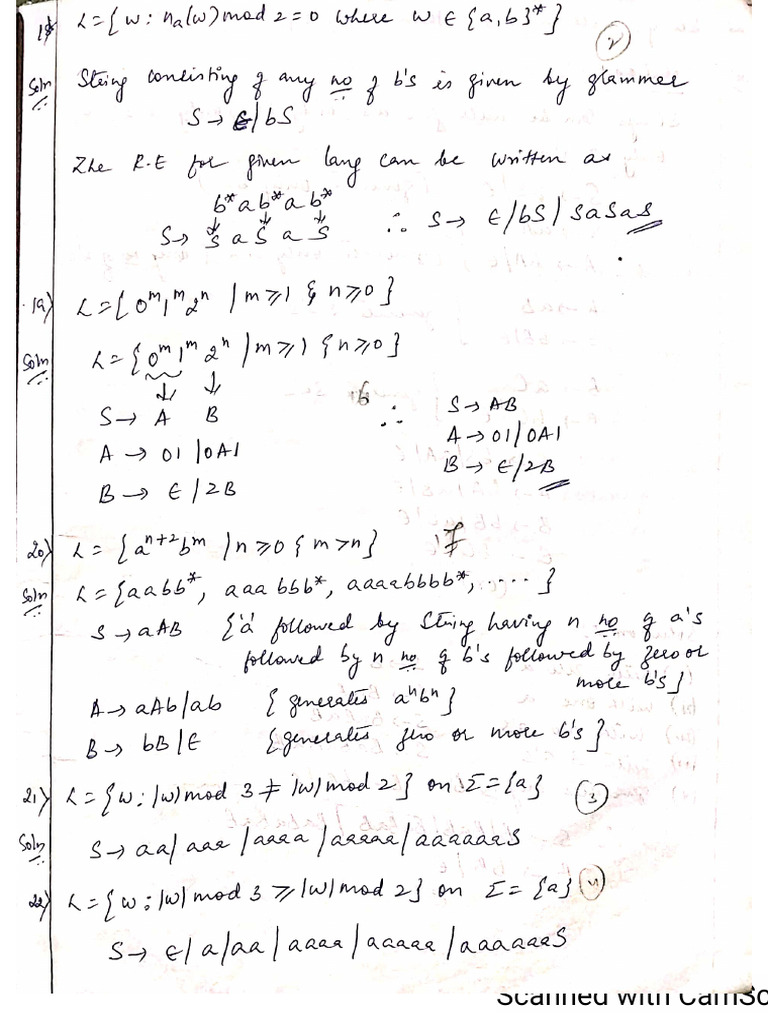 18) L = { w : na(w) mod 2 = 0 where w ∈ {a,b}* }
Soln String consisting of any no of b's is given by grammer
S → ϵ/bS
The R.E for given lang can be written as
b*ab*ab*
S → S a S a S ∴ S → ϵ/bS/SaSaS
19) L = { 0^m 1^m 2^n | m ≥ 1 & n ≥ 0 }
Soln L = { 0^m 1^m 2^n | m ≥ 1 & n ≥ 0 }
S → A B ∴ S → AB
A → 01/0A1 A → 01/0A1
B → ϵ/2B B → ϵ/2B
20) L = { a^n+2 b^m | n ≥ 0 & m > n }
Soln L = { aabb*, aaabbb*, aaaabbbb*, ..... }
S → aAB {'a' followed by string having n no of a's
followed by n no of b's followed by zero or
more b's}
A → aAb/ab { generates a^n b^n }
B → bB/ϵ { generates zero or more b's }
21) L = { w : |w| mod 3 ≠ |w| mod 2 } on Σ = {a} 3
Soln S → aa/aaa/aaaa/aaaaa/aaaaaaS
22) L = { w : |w| mod 3 ≥ |w| mod 2 } on Σ = {a}
S → ϵ/a/aa/aaaa/aaaaa/aaaaaaS
Scanned with CamSc